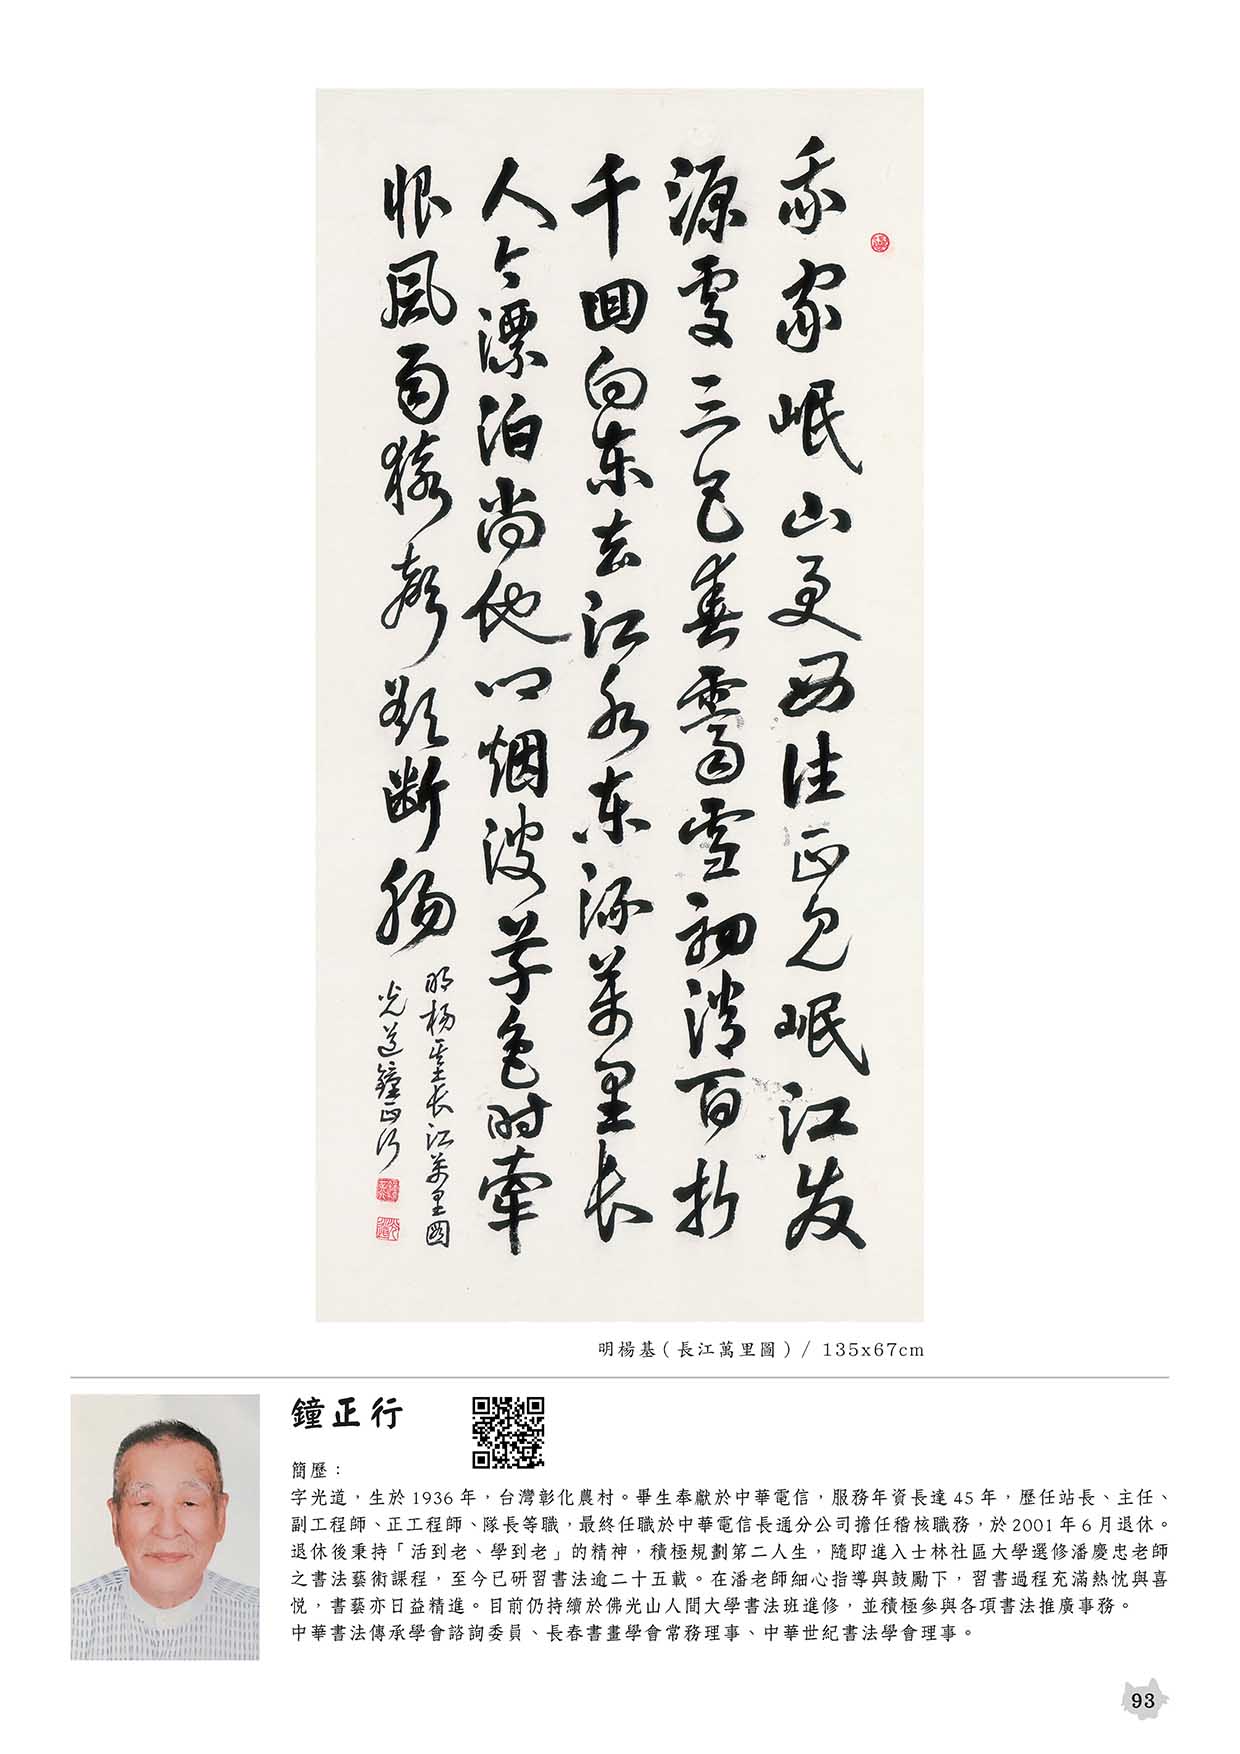 我家岷山更西住正見岷江發
源處三巴春霽雪初消百折
千回向東去江水東流萬里長
人今漂泊尚他鄉烟波草色時牽
恨風雨猿聲欲斷腸
明楊基長江萬里圖
光道鐘正行
明楊基（長江萬里圖）/ 135x67cm
鐘正行
簡歷：
字光道，生於1936年，台灣彰化農村。畢生奉獻於中華電信，服務年資長達45年，歷任站長、主任、
副工程師、正工程師、隊長等職，最終任職於中華電信長通分公司擔任稽核職務，於2001年6月退休。
退休後秉持「活到老、學到老」的精神，積極規劃第二人生，隨即進入士林社區大學選修潘慶忠老師
之書法藝術課程，至今已研習書法逾二十五載。在潘老師細心指導與鼓勵下，習書過程充滿熱忱與喜
悅，書藝亦日益精進。目前仍持續於佛光山人間大學書法班進修，並積極參與各項書法推廣事務。
中華書法傳承學會諮詢委員、長春書畫學會常務理事、中華世紀書法學會理事。
93